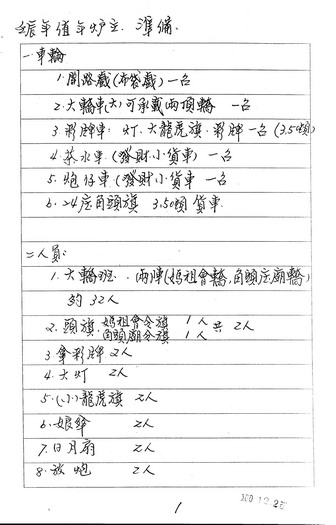 年值年炉主. 準備.
一車輪
1.開路戲(布袋戲)一名
2.大轎車(大)可承載兩頂轎 一名
3.彩牌車: 灯.大龍虎旗.彩牌一名(3.5噸)
4.茶水車.(發財小貨車) 一名
5.炮仔車.(發財小貨車 一名
6.24庄角頭旗 3.50噸貨車
二人員:
1.大轎班..兩陣(媽祖會轎.角頭庄廟轎)
約32人
2.頭旗.媽祖會令旗 1人 共2人
角頭廟令旗 1人
3.拿彩牌 2人
4.大灯 2人
5.(小)龍虎旗 2人
6.娘傘 2人
7.日月扇 2人
8.放炮 2人
1
100.12.25